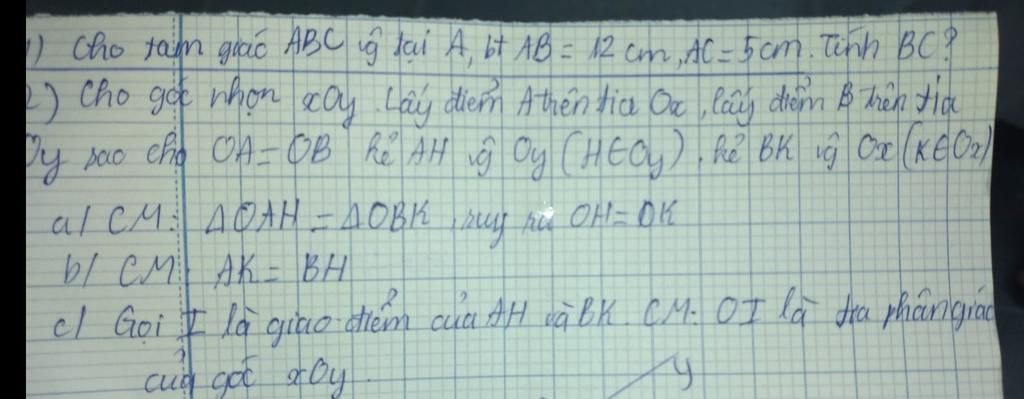 1) Cho tam giác ABC vg tại A, bt AB = 12 cm, AC = 5cm. Tính BC?
2) Cho góc nhọn xOy. Lấy điểm A trên tia Ox, lấy điểm B trên tia
Oy sao cho OA = OB kẻ AH vg Oy (H∈Oy), kẻ BK vg Ox (K∈Ox)
a/ CM: ΔOAH = ΔOBK, suy ra OH = OK
b/ CM: AK = BH
c/ Gọi I là giao điểm của AH và BK. CM: OI là tia phân giác
của góc xOy.
y